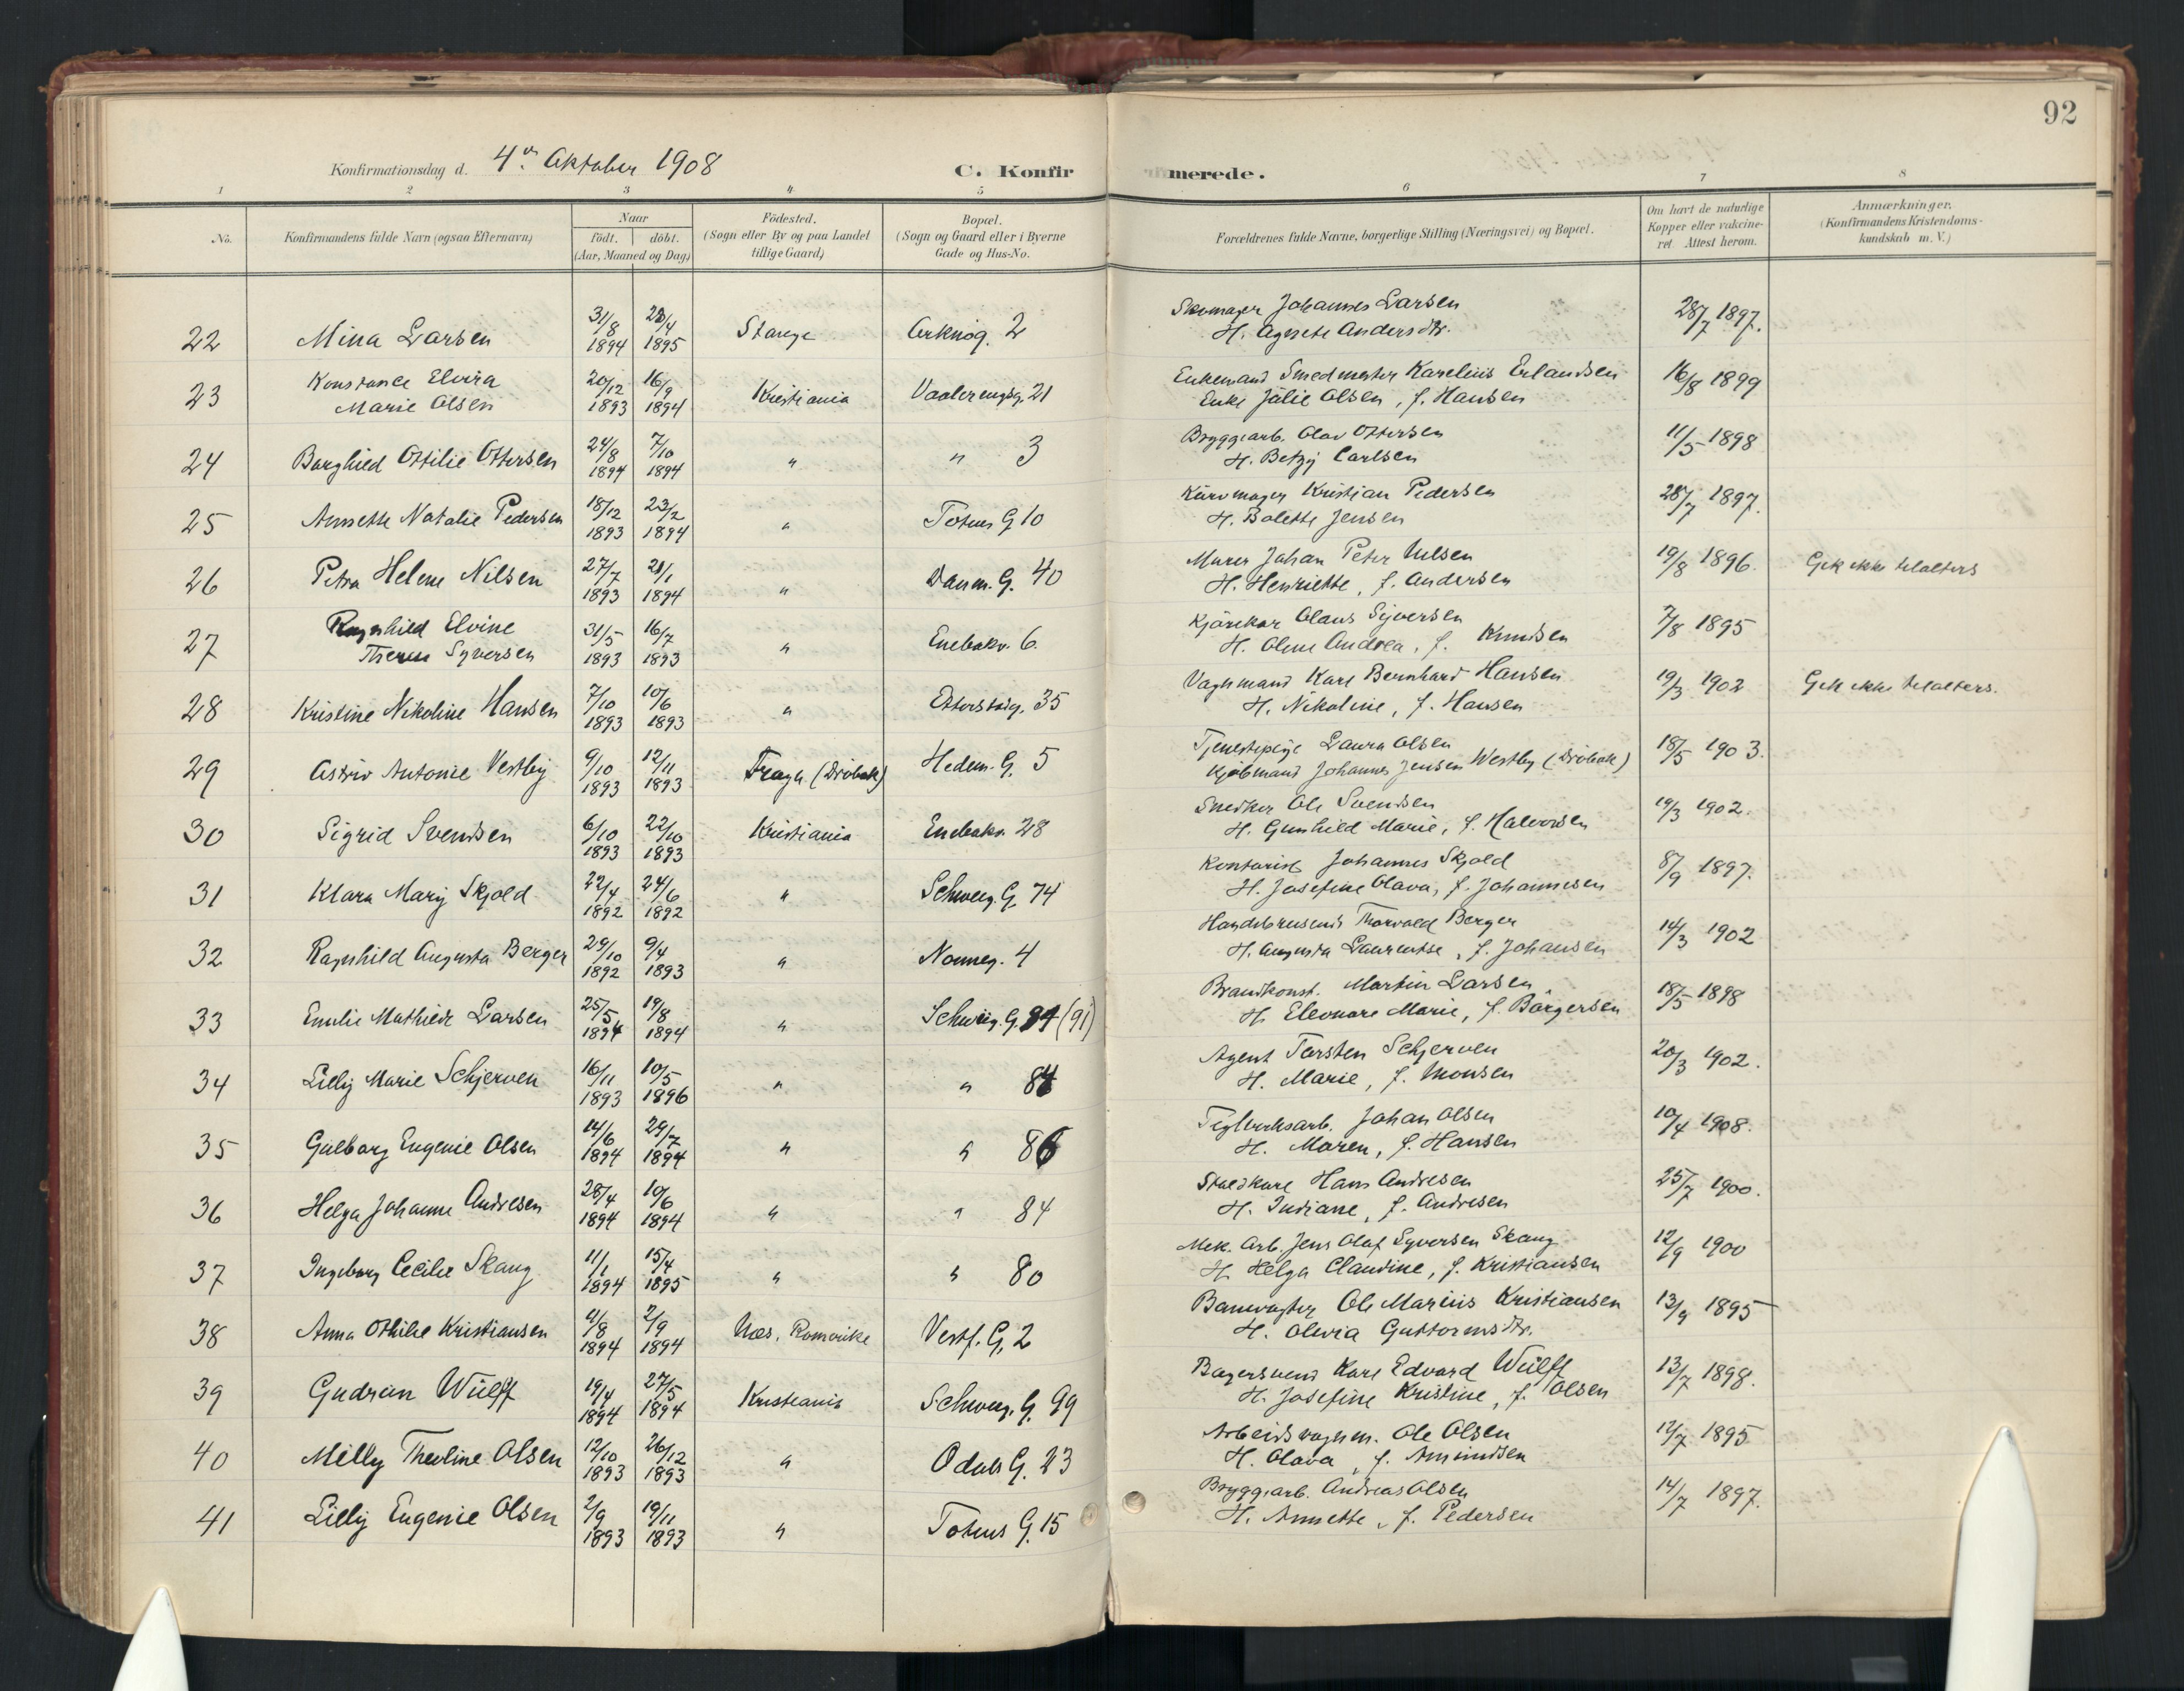 92
Konfirmationsdag d. 4de Oktober 1908
C. Konfirmerede.
1 2 3 4 5 6 7 8
No.
Konfirmandens fulde Navn (ogsaa Efternavn)
Naar
födt. döbt.
(Aar, Maaned og Dag)
Födested.
(Sogn eller By og paa Landet
tillige Gaard)
Bopæl.
(Sogn og Gaard eller i Byerne
Gade og Hus-No.
Forældrenes fulde Navne, borgerlige Stilling (Næringsvei) og Bopæl.
Om havt de naturlige
Kopper eller vakcine-
ret. Attest herom.
Anmærkninger.
(Konfirmandens Kristendoms-
kundskab m. V.)
22 Mina Larsen 31/8 1894 23/4 1895 Stange Arknog. 2 Skomager Johannes Larsen 28/7 1897.
H. Agnete Andersdtr.
23 Konstance Elvira 20/12 1893 16/9 1894 Kristiania Vaalerengsg. 21 Enkemand Smedmester Karelius Erlandsen 16/8 1899
Marie Olsen Enke Julie Olsen, f. Hansen
24 Borghild Ottilie Ottersen 24/8 1894 7/10 1894 " " 3 Bryggiarb. Olav Ottersen 11/5 1898
H. Betzy Carlsen
25 Annette Natalie Pedersen 18/12 1893 23/2 1894 " Totens G 10 Kurvmager Kristian Pedersen 28/7 1897.
H. Bolette Jensen
26 Petra Helene Nilsen 27/7 1893 21/1 1894 " Danm. G. 40 Murer Johan Peter Nilsen 19/8 1896. Gik ikke tilalters
H. Henriette, f. Andersen
27 Ragnhild Elvine 31/5 1893 16/7 1893 " Enebakv. 6. Kjörekar Olaus Syversen 7/8 1895
Therese Syversen H. Oline Andrea, f. Knudsen
28 Kristine Nikoline Hansen 7/10 1893 10/6 1893 " Etterstadg. 35 Vognmand Karl Bernhard Hansen 19/3 1902 Gik ikke tilalters.
H. Nikoline, f. Hansen
29 Astrid Antonie Vestby 9/10 1893 12/11 1893 Frogn (Dröbak) Hedem. G. 5 Tjenestepige Laura Olsen 18/5 1903.
Kjöbmand Johannes Jensen Westby (Dröbak)
30 Sigrid Svendsen 6/10 1893 22/10 1893 Kristiania Enebakv. 28 Snedker Ole Svendsen 19/3 1902.
H. Gunhild Marie, f. Halvorsen
31 Klara Mary Skjold 22/4 1892 24/6 1892 " Schweig. G. 74 Kontorist Johannes Skjold 8/9 1897.
H. Josefine Olava, f. Johannesen
32 Ragnhild Augusta Berger 29/10 1892 9/4 1893 " Nonneg. 4 Handelsreisende Thorvald Berger 14/3 1902
H. Augusta Laurentse, f. Johansen
33 Emilie Mathilde Larsen 25/5 1894 19/8 1894 " Schweig. G. 84 (91) Brandkonst. Martin Larsen 18/5 1898
H. Eleonore Marie, f. Börgersen
34 Lilly Marie Schjerven 16/11 1893 10/5 1896 " " 84 Agent Torsten Schjerven 20/3 1902.
H. Marie, f. Monsen
35 Gulborg Eugenie Olsen 14/6 1894 29/7 1894 " " 86 Teglverksarb. Johan Olsen 10/4 1908.
H. Maren, f. Hansen
36 Helga Johanne Andresen 28/4 1894 10/6 1894 " " 84 Staldkarl Hans Andresen 25/7 1900.
H. Indiane, f. Andresen
37 Ingeborg Cecilie Skaug 11/1 1894 15/4 1895 " " 80 Mek. Arb. Jens Olaf Syversen Skaug 12/9 1900
H. Helga Claudine, f. Kristiansen
38 Anna Othilie Kristiansen 4/8 1894 2/9 1894 Næs, Romerike Vestf. G. 2 Banevogter Ole Marius Kristiansen 13/9 1895
H. Olivia Guttormsdtr.
39 Gudrun Wülff 19/4 1894 27/5 1894 Kristiania Schweig. G. 99 Bagersvend Karl Edvard Wülff 13/7 1898.
H. Josefine Kristine, f. Olsen
40 Milly Theoline Olsen 12/10 1893 26/12 1893 " Odals G. 23 Arbeidsvognm. Ole Olsen 12/7 1895
H. Olava, f. Amundsen
41 Lilly Eugenie Olsen 2/9 1893 19/11 1893 " Totens G. 15 Bryggiarb. Andreas Olsen 14/7 1897.
H. Annette, f. Pedersen